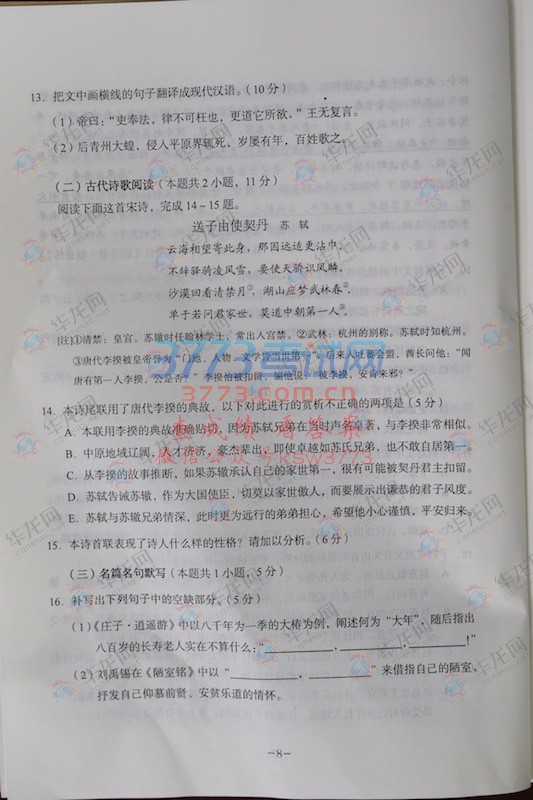 13. 把文中画横线的句子翻译成现代汉语。(10分)
(1)帝曰:“吏奉法,律不可枉也,更道它所欲。”王无复言。
(2)后青州大蝗,侵入平原界辄死,岁屡有年,百姓歌之。
(二)古代诗歌阅读(本题共2小题,11分)
阅读下面这首宋诗,完成14~15题。
送子由使契丹 苏轼
云海相望寄此身,那因远适更沾巾。
不辞驿骑凌风雪,要使天骄识凤麟。
沙漠回看清禁月①,湖山应梦武林春②。
单于若问君家世,莫道中朝第一人③。
[注]①清禁:皇宫。苏辙时任翰林学士,常出入宫禁。②武林:杭州的别称。苏轼时知杭州。
③唐代李揆被皇帝誉为“门地、人物、文学皆当世第一”。后来入吐蕃会盟,酋长问他:“闻
唐有第一人李揆,公是否?”李揆怕被扣留,骗他说:“彼李揆,安肯来邪?”
14. 本诗尾联用了唐代李揆的典故,以下对此进行的赏析不正确的两项是(5分)
A. 本联用李揆的典故准确贴切,因为苏轼兄弟在当时声名卓著,与李揆非常相似。
B. 中原地域辽阔,人才济济,豪杰辈出,即使卓越如苏氏兄弟,也不敢自居第一。
C. 从李揆的故事推断,如果苏辙承认自己的家世第一,很有可能被契丹君主扣留。
D. 苏轼告诫苏辙,作为大国使臣,切莫以家世傲人,而要展示出谦恭的君子风度。
E. 苏轼与苏辙兄弟情深,此时更为远行的弟弟担心,希望他小心谨慎,平安归来。
15. 本诗首联表现了诗人什么样的性格?请加以分析。(6分)
(三)名篇名句默写(本题共1小题,5分)
16. 补写出下列句子中的空缺部分。(5分)
(1)《庄子·逍遥游》中以八千年为一季的大椿为例,阐述何为“大年”,随后指出
八百岁的长寿老人实在不算什么:“____,____,____!”
(2)刘禹锡在《陋室铭》中以“____,____”来借指自己的陋室,
抒发自己仰慕前贤、安贫乐道的情怀。
—8—
3773考试网
3773.com.cn
查成绩 看答案
微信公众号ksw3773
华龙网